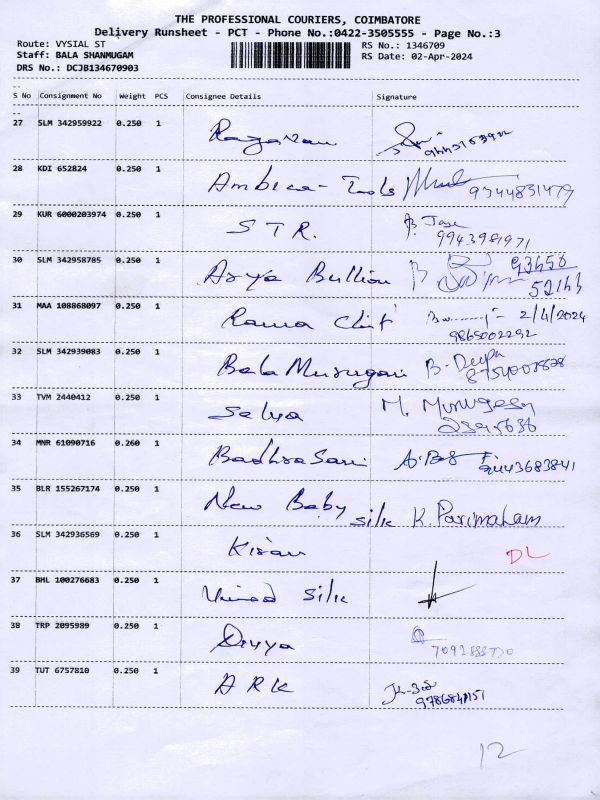 THE PROFESSIONAL COURIERS, COIMBATORE
Delivery Runsheet - PCT - Phone No.:0422-3505555 - Page No.:3
Route: VYSIAL ST RS No.: 1346709
Staff: BALA SHANMUGAM RS Date: 02-Apr-2024
DRS No.: DCJB134670903
S No Consignment No Weight PCS Consignee Details Signature
27 SLM 342959922 0.250 1
28 KDI 652824 0.250 1 Ambica - Tools 9344831479
29 KUR 6000203974 0.250 1 STR. B. Jase
9943981971
30 SLM 342958785 0.250 1 Arya Bullion
31 MAA 108868097 0.250 1 Rama Chit 2/4/2024
9865002292
32 SLM 342939083 0.250 1 Bala Murugan B. Deepa
33 TVM 2440412 0.250 1 Selva M. Murugesan
34 MNR 61090716 0.260 1
35 BLR 155267174 0.250 1 New Baby Silk K. Parimalam
36 SLM 342936569 0.250 1 Kiran DL
37 BHL 100276683 0.250 1 Silk
38 TRP 2095989 0.250 1 Divya
39 TUT 6757810 0.250 1 ARK
12